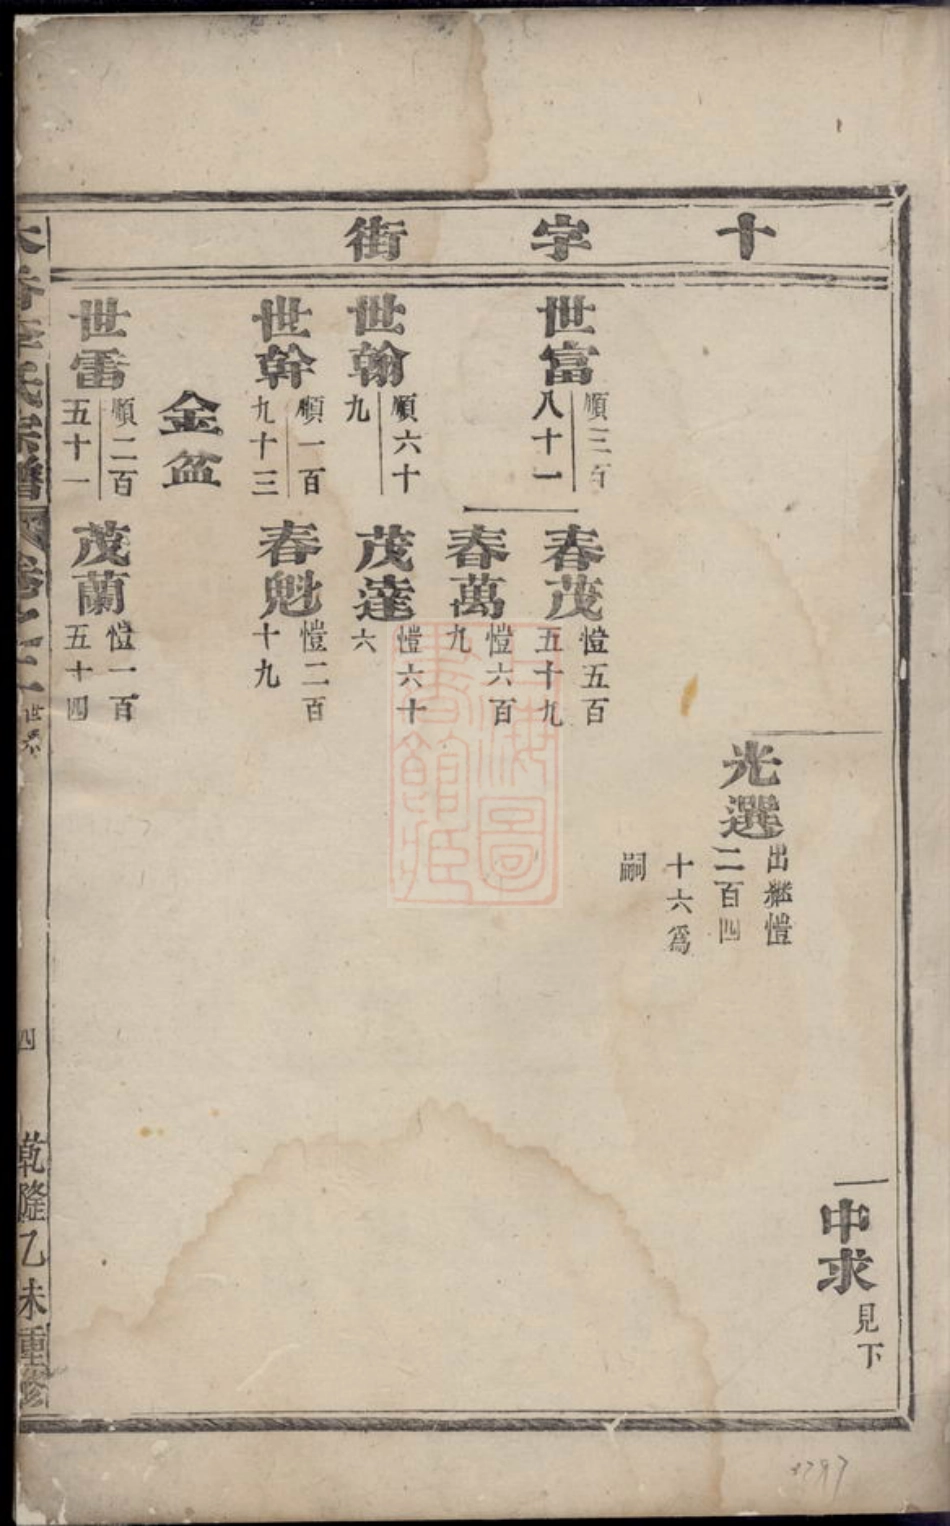 十字街
中求見下
光選出繼愷
二百四
十六爲
嗣
世富順三百
八十一
春茂愷五百
五十九
春萬愷六百
九
世翰順六十
九
茂達愷六十
六
世幹順一百
九十三
春魁愷二百
十九
金盆
世雷順二百
五十一
茂蘭愷一百
五十四
李氏宗譜
卷之二
世系
四
乾隆乙未重修